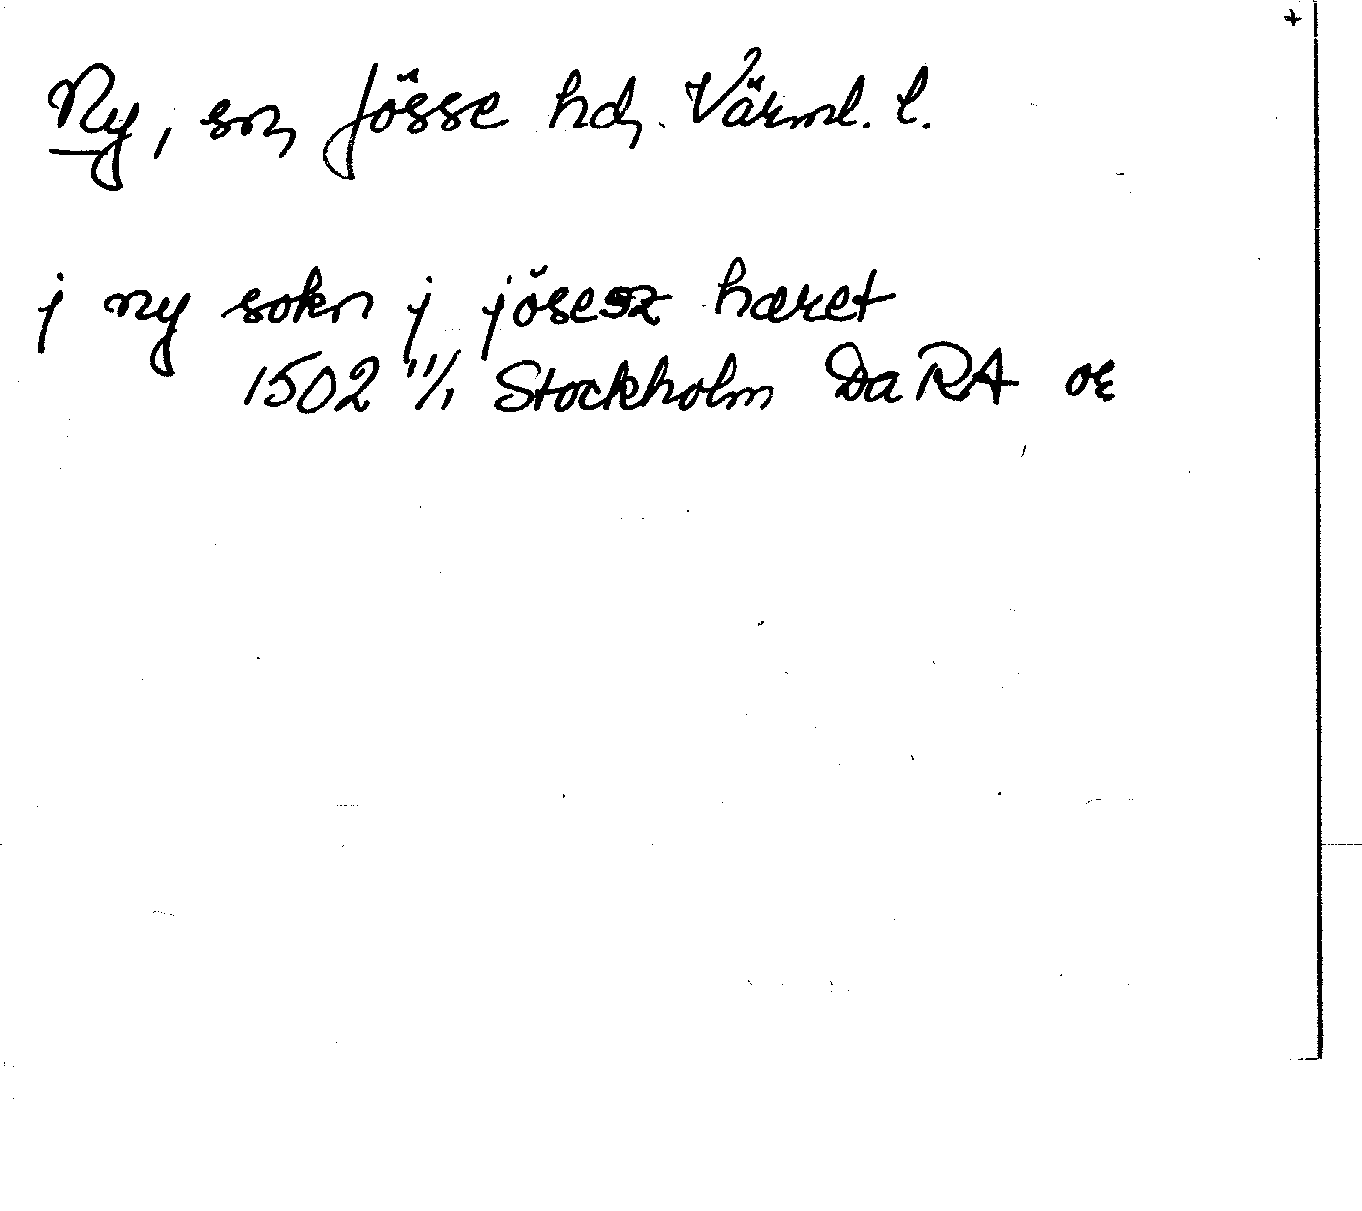 +
Ny, sn, Jösse hd, Värml. l.
j ny sokn j jösesz hæret
1502 11/1 Stockholm DaRA oε